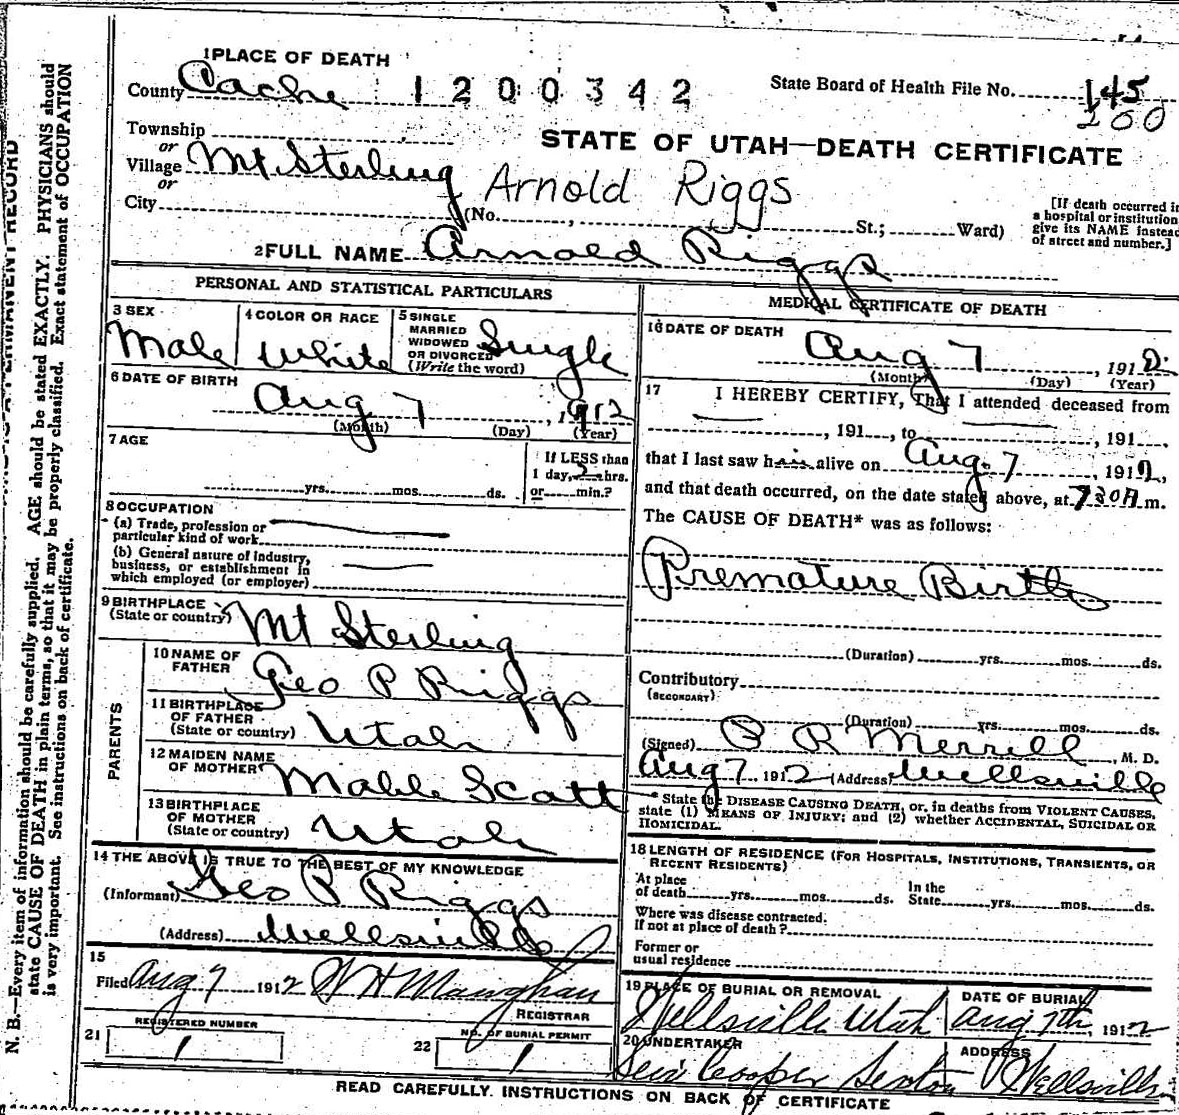 1 PLACE OF DEATH
County Cache 1 2 0 0 3 4 2 State Board of Health File No. 145
200
Township
or
Village Mt. Sterling
or
City (No. , St.; Ward)
STATE OF UTAH—DEATH CERTIFICATE
Arnold Riggs
[If death occurred in
a hospital or institution
give its NAME instead
of street and number.]
2 FULL NAME Arnold Riggs
PERSONAL AND STATISTICAL PARTICULARS
3 SEX
Male
4 COLOR OR RACE
White
5 SINGLE
MARRIED
WIDOWED
OR DIVORCED
(Write the word)
Single
6 DATE OF BIRTH
Aug 7, 1912
(Month) (Day) (Year)
7 AGE
yrs. mos. ds.
If LESS than
1 day, hrs.
or min.?
8 OCCUPATION
(a) Trade, profession or
particular kind of work
(b) General nature of industry,
business, or establishment in
which employed (or employer)
9 BIRTHPLACE
(State or country)
Mt Sterling
PARENTS
10 NAME OF
FATHER
Geo P Riggs
11 BIRTHPLACE
OF FATHER
(State or country)
Utah
12 MAIDEN NAME
OF MOTHER
Mable Scott
13 BIRTHPLACE
OF MOTHER
(State or country)
Utah
14 THE ABOVE IS TRUE TO THE BEST OF MY KNOWLEDGE
(Informant) Geo P Riggs
(Address) Wellsville
15
Filed Aug 7 1912 W H Maughan
REGISTRAR
21 REGISTERED NUMBER
1
22 NO. OF BURIAL PERMIT
1
MEDICAL CERTIFICATE OF DEATH
16 DATE OF DEATH
Aug 7, 1912
(Month) (Day) (Year)
17 I HEREBY CERTIFY, That I attended deceased from
, 191 , to , 191 ,
that I last saw him alive on Aug. 7, 1912,
and that death occurred, on the date stated above, at 730A m.
The CAUSE OF DEATH* was as follows:
Premature Birth
(Duration) yrs. mos. ds.
Contributory
(SECONDARY)
(Duration) yrs. mos. ds.
(Signed) P R Merrill, M. D.
Aug 7 1912 (Address) Wellsville
* State the DISEASE CAUSING DEATH, or, in deaths from VIOLENT CAUSES,
state (1) MEANS OF INJURY; and (2) whether ACCIDENTAL, SUICIDAL OR
HOMICIDAL.
18 LENGTH OF RESIDENCE (FOR HOSPITALS, INSTITUTIONS, TRANSIENTS, OR
RECENT RESIDENTS)
At place
of death yrs. mos. ds.
In the
State yrs. mos. ds.
Where was disease contracted.
If not at place of death?
Former or
usual residence
19 PLACE OF BURIAL OR REMOVAL
Wellsville Utah
DATE OF BURIAL
Aug 7th, 1912
20 UNDERTAKER
Cooper Sexton
ADDRESS
Wellsville
READ CAREFULLY. INSTRUCTIONS ON BACK OF CERTIFICATE
PERMANENT RECORD
N. B.—Every item of information should be carefully supplied. AGE should be stated EXACTLY. PHYSICIANS should
state CAUSE OF DEATH in plain terms, so that it may be properly classified. Exact statement of OCCUPATION
is very important. See instructions on back of certificate.